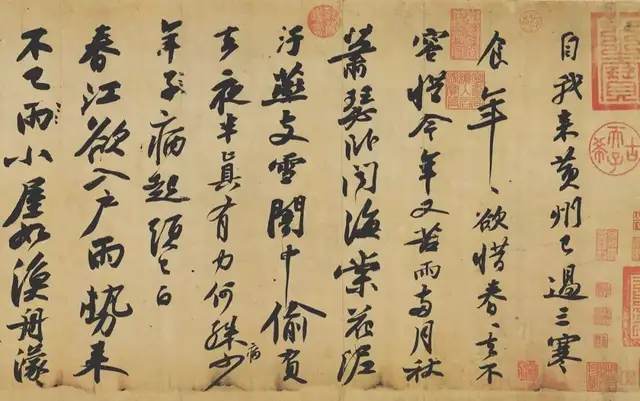 自我來黃州已過三寒
食年〻欲惜春〻去不
容惜今年又苦雨兩月秋
蕭瑟臥聞海棠花泥
汙燕支雪闇中偷負
去夜半真有力何殊少
病
年子病起頭已白
春江欲入戶雨勢來
不已雨小屋如漁舟濛
古希天子